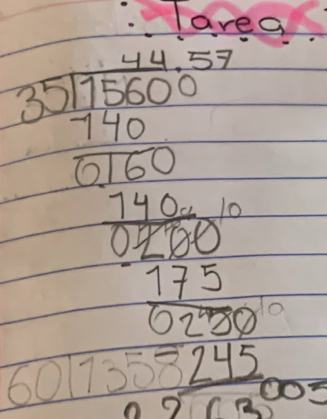 Tarea
44.57
35 15600
140
0160
140
0200
175
0250
60 1358 245